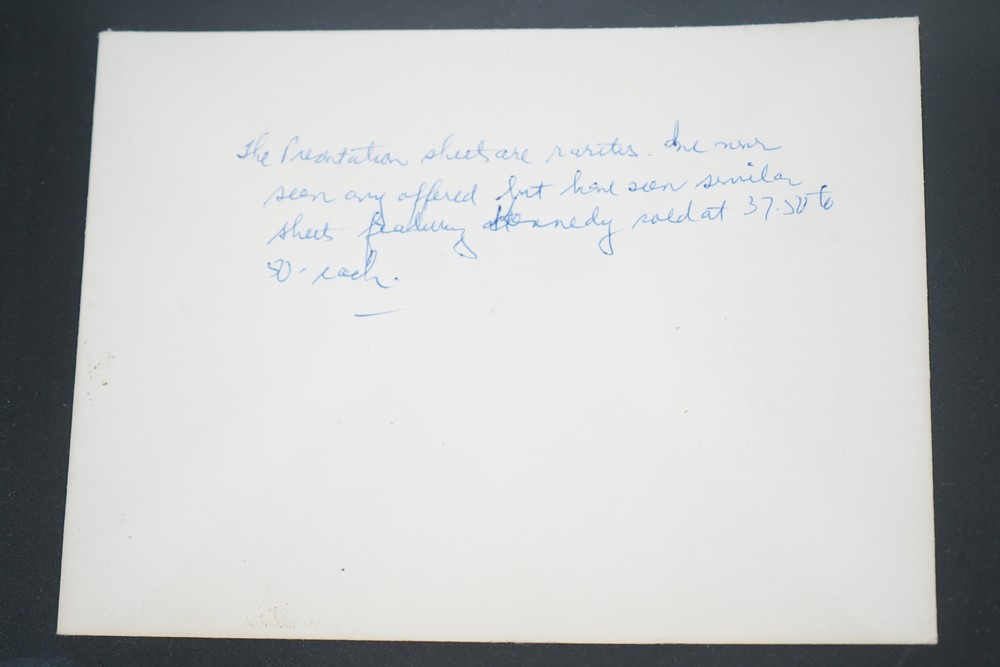 The Presentation sheets are rarities. I've never
seen any offered but have seen similar
sheets featuring Kennedy sold at 37.50 to
50- each.